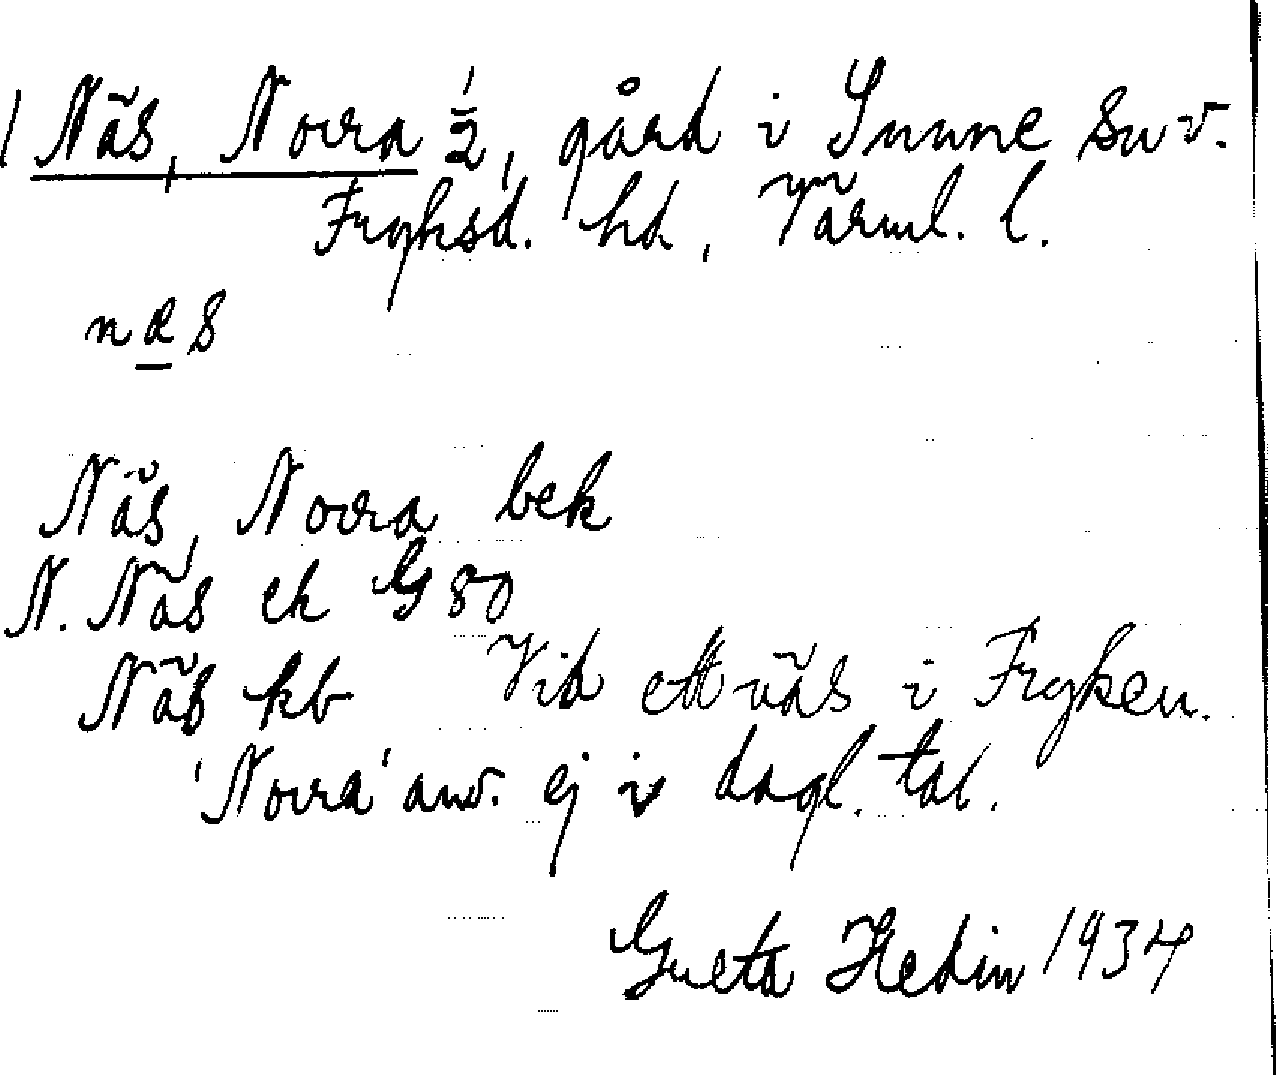 1 Näs, Norra 1/2, gård i Sunne sn v.
Fryksd. hd, Värml. l.
næs
Näs, Norra bek
N. Näs ek G 80
Näs kb Vid ett näs i Fryken.
'Norra' anv. ej i dagl. tal.
Greta Hedin 1934